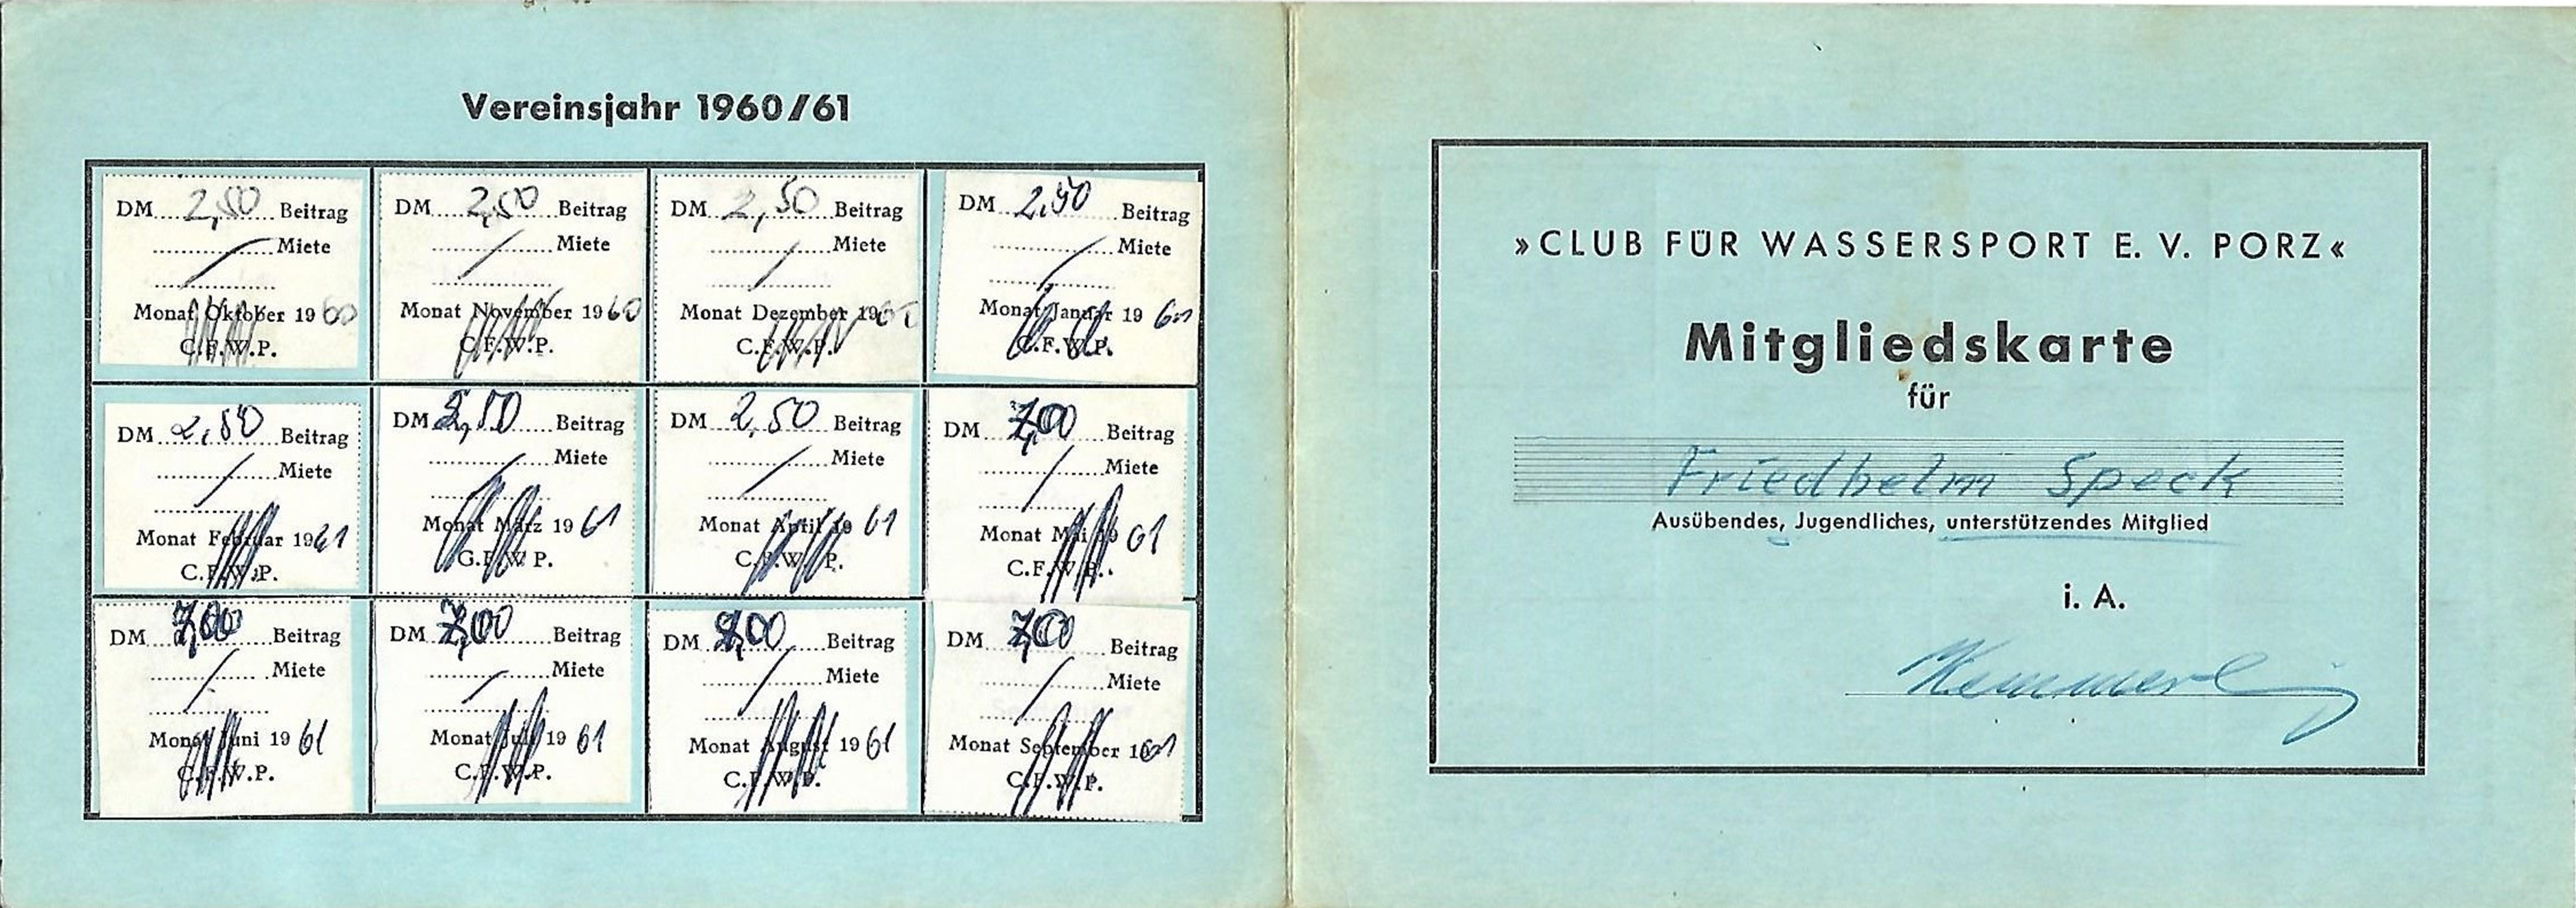 Vereinsjahr 1960/61
DM 2,50 Beitrag
Miete
Monat Oktober 1960
C.F.W.P.
DM 2,50 Beitrag
Miete
Monat November 1960
C.F.W.P.
DM 2,50 Beitrag
Miete
Monat Dezember 1960
C.F.W.P.
DM 2,50 Beitrag
Miete
Monat Januar 1961
C.F.W.P.
DM 2,50 Beitrag
Miete
Monat Februar 1961
C.F.W.P.
DM 2,50 Beitrag
Miete
Monat März 1961
C.F.W P.
DM 2,50 Beitrag
Miete
Monat April 1961
C.F.W.P.
DM 7,00 Beitrag
Miete
Monat Mai 1961
C.F.W.P.
DM 7,00 Beitrag
Miete
Monat Juni 1961
C.F.W.P.
DM 7,00 Beitrag
Miete
Monat Juli 1961
C.F.W.P.
DM ,00 Beitrag
Miete
Monat August 1961
C.F.W.P.
DM 7,00 Beitrag
Miete
Monat September 1961
C.F.W.P.
»CLUB FÜR WASSERSPORT E. V. PORZ«
Mitgliedskarte
für
Friedhelm Speck
Ausübendes, Jugendliches, unterstützendes Mitglied
i. A.